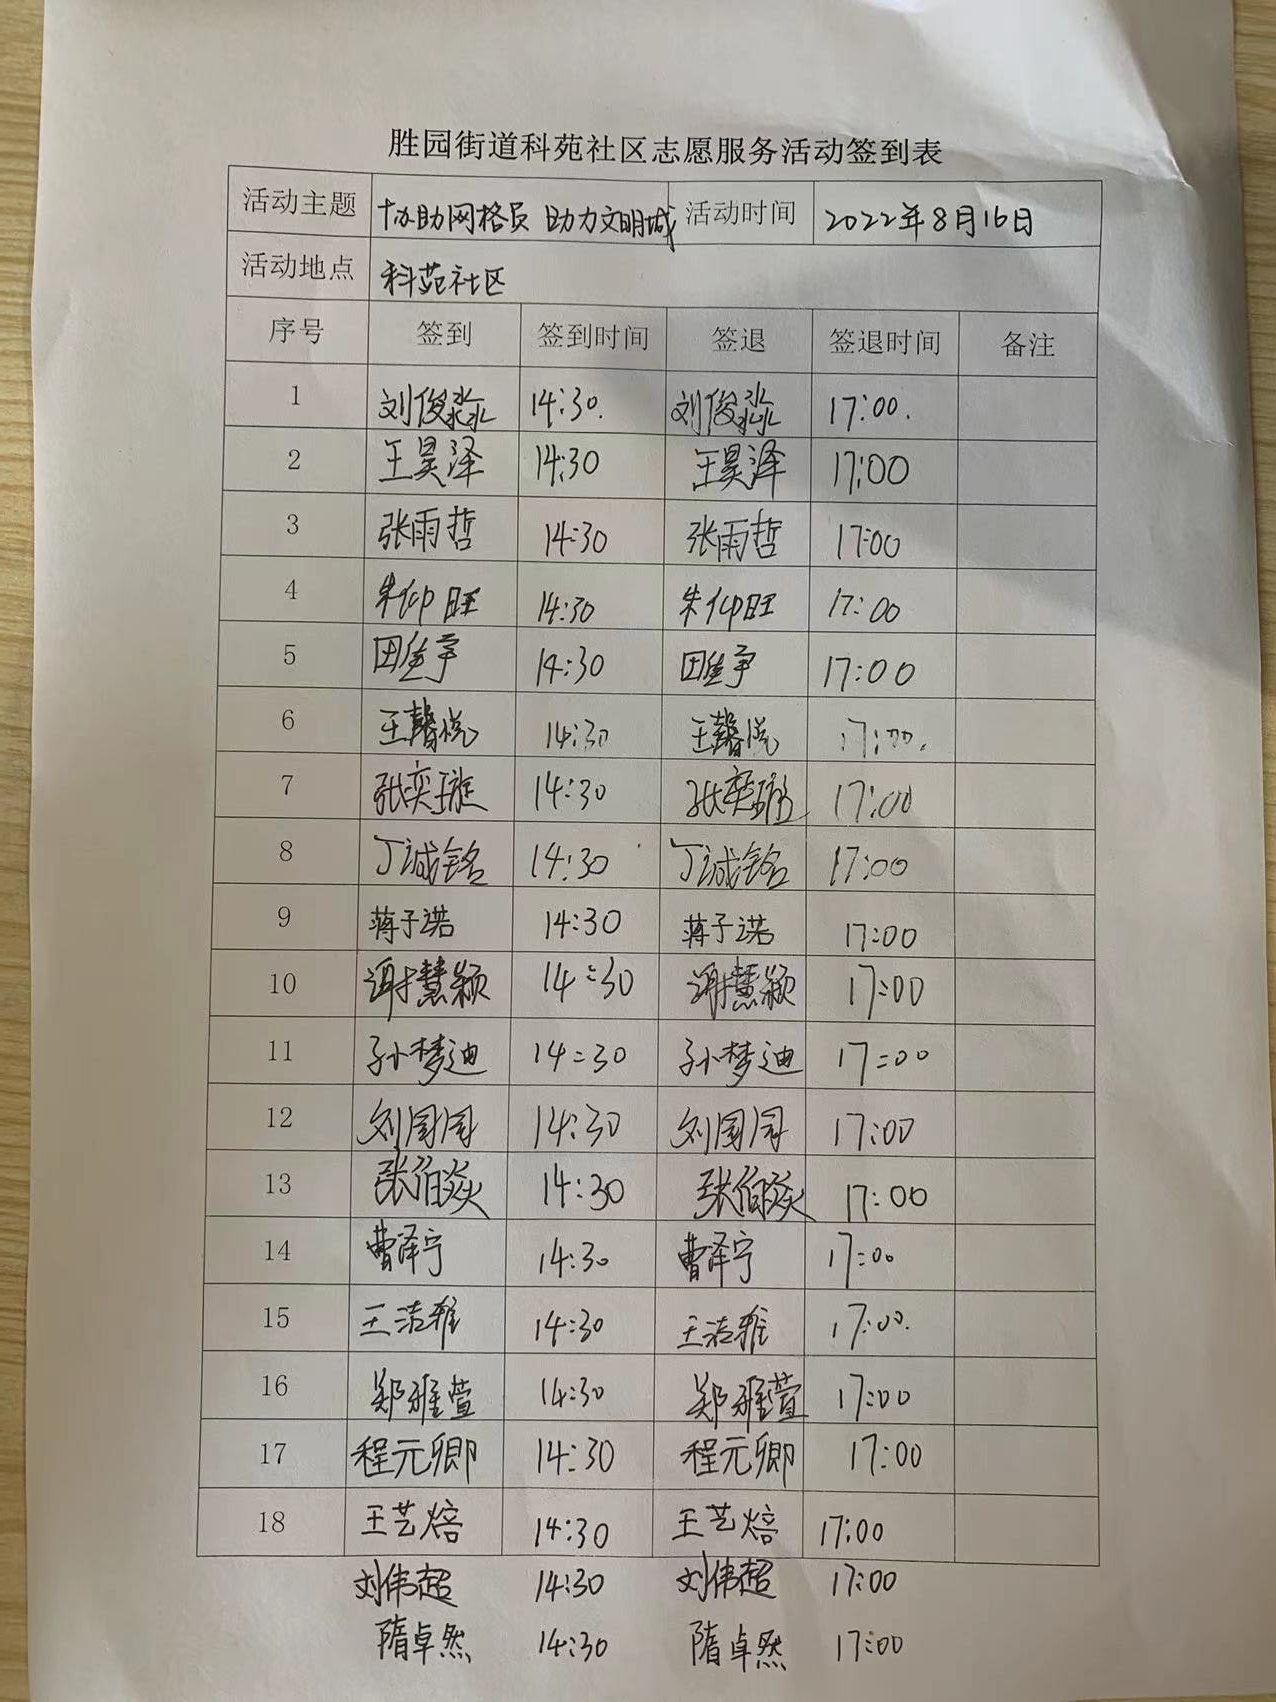 胜园街道科苑社区志愿服务活动签到表
活动主题 协助网格员 助力文明城 活动时间 2022年8月16日
活动地点 科苑社区
序号 签到 签到时间 签退 签退时间 备注
1 刘俊淼 14:30. 刘俊淼 17:00.
2 王昊泽 14:30 王昊泽 17:00
3 张雨哲 14:30 张雨哲 17:00
4 朱仰旺 14:30 朱仰旺 17:00
5 14:30 17:00
6 王馨悦 14:30 王馨悦 17:00.
7 张奕璇 14:30 张奕璇 17:00
8 丁诚铭 14:30 丁诚铭 17:00
9 蒋子诺 14:30 蒋子诺 17:00
10 谢慧颖 14:30 谢慧颖 17:00
11 孙梦迪 14:30 孙梦迪 17:00
12 14:30 17:00
13 张伯焱 14:30 张伯焱 17:00
14 曹泽宁 14:30 曹泽宁 17:00
15 王洁雅 14:30 王洁雅 17:00.
16 郑雅萱 14:30 郑雅萱 17:00
17 程元卿 14:30 程元卿 17:00
18 王艺焙 14:30 王艺焙 17:00
刘伟超 14:30 刘伟超 17:00
隋卓然 14:30 隋卓然 17:00